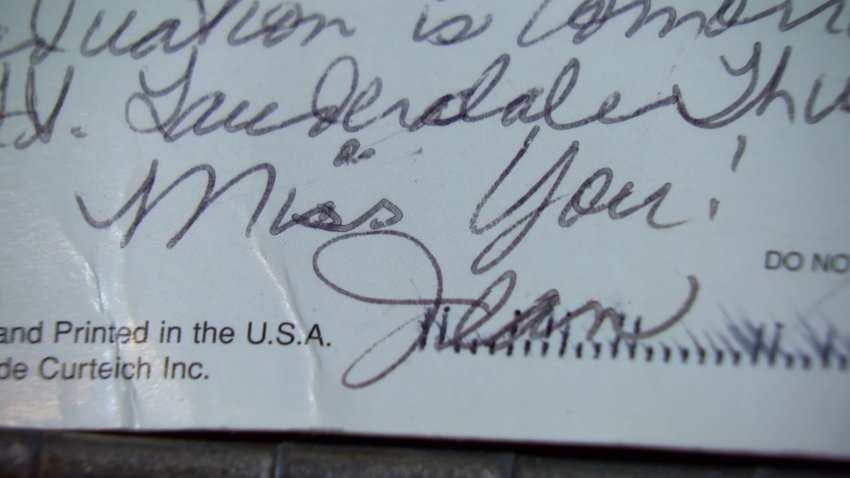 duation is tomorr
Ft. Lauderdale Thu
Miss You!
DO NO
Jean
and Printed in the U.S.A.
de Curteich Inc.